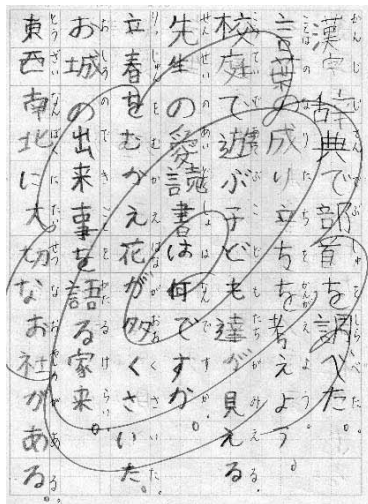 漢字辞典で部首を調べた。
言葉の成り立ちを考えよう。
校庭で遊ぶ子ども達が見える。
先生の愛読書は何ですか。
立春をむかえ花が多くさいた。
お城の出来事を語る家来。
東西南北に大切なお社がある。